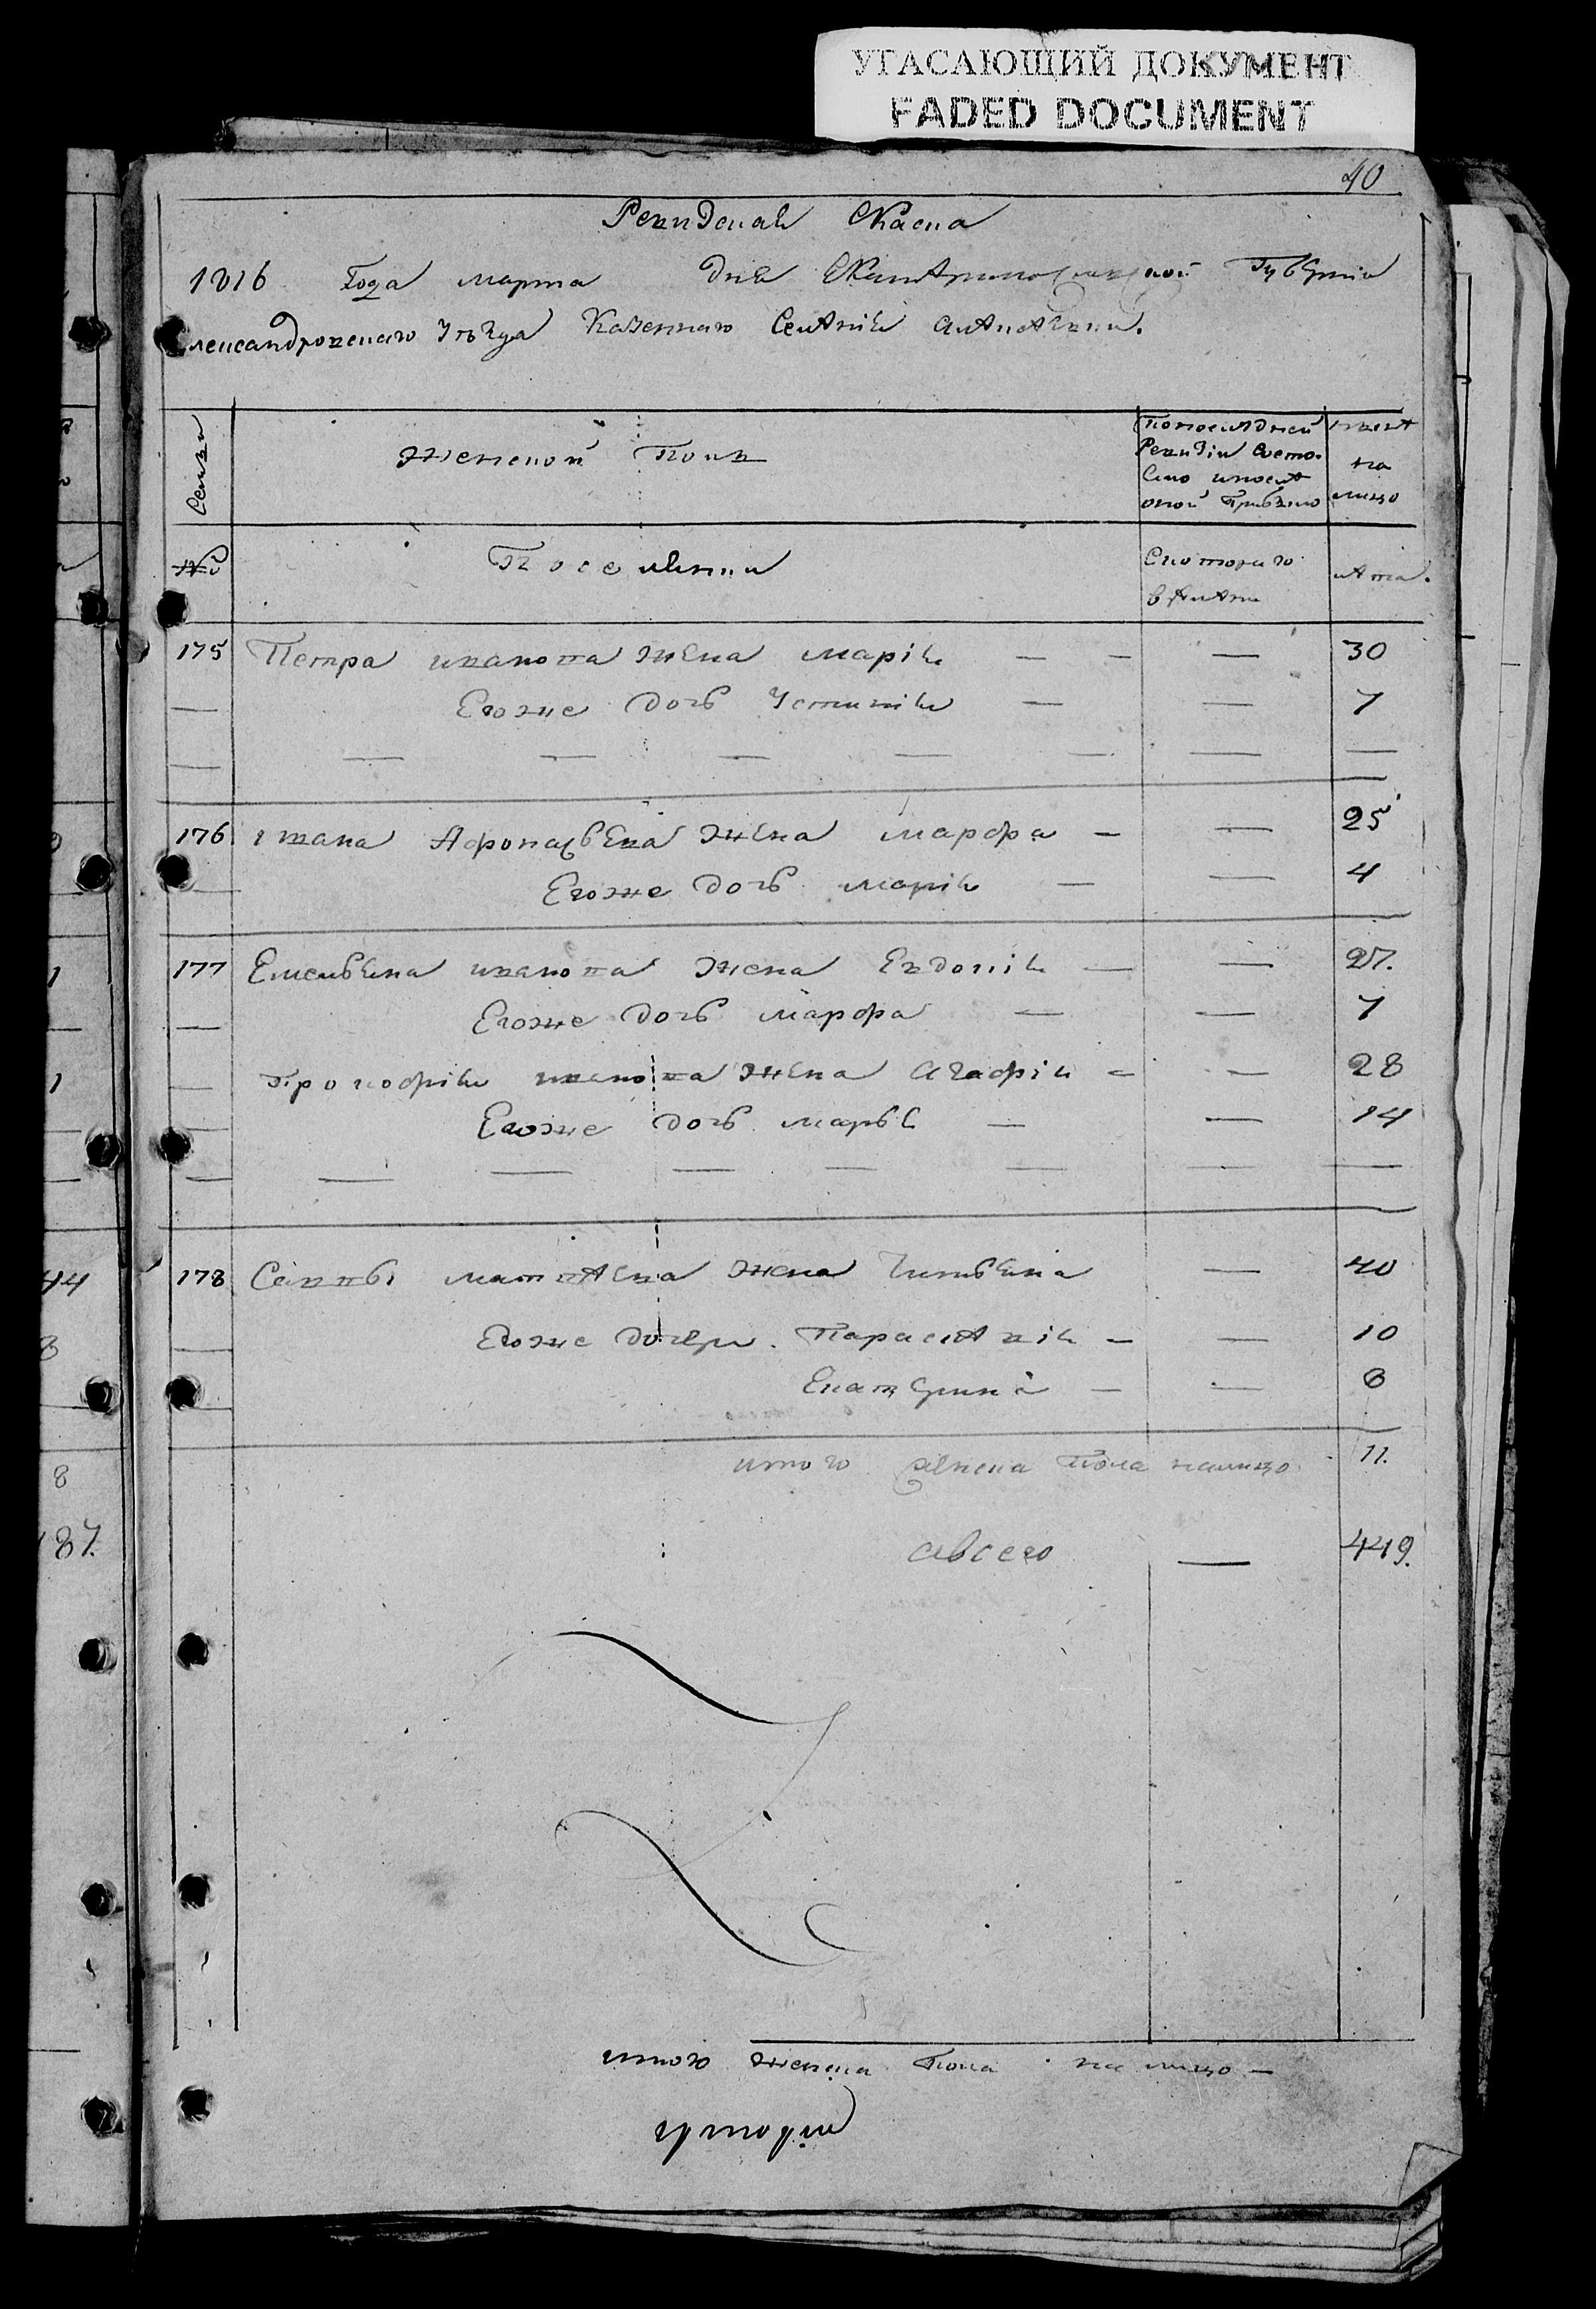 УГАСАЮЩИЙ ДОКУМЕНТ
FADED DOCUMENT
40
Ревизская Скаска
1816 Года марта дня Екатеринославской Губернии
Александровскаго Уезда Казеннаго Селения
Семьи
Женской Полъ
По последней
Ревизіи
ныне
на
лицо
№
Поселянки
Скотораго
времяни
лета.
175 Петра иванова жена марія — — — 30
— Егоже дочь Устинія — — 7
— — — — — — — —
176 Ивана Афонасьева жена марфа — — 25
— Егоже дочь марія — — 4
177 иванова жена Евдокія — — 27.
— Егоже дочь марфа — — 7
— Прокофія иванова жена Агафія — — 28
— Егоже дочь марья — — 14
— — — — — — — —
178 Саввы матвеева жена — 40
— Егоже дочери Парасковія — — 10
— Екатерина — — 6
итого женска Пола налицо 11.
авсего — 449.
итого женска Пола на лицо —
44
8
187.